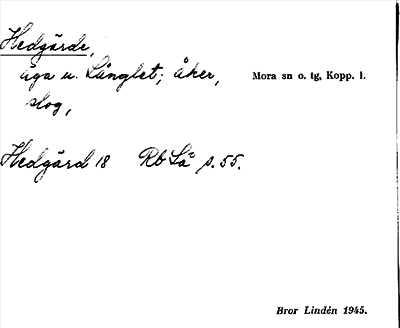 Hedgärde,
äga u. Långlet; åker, Mora sn o. tg, Kopp. l.
slog,
Hedgärd 18 Rb Så s. 55.
Bror Lindén 1945.